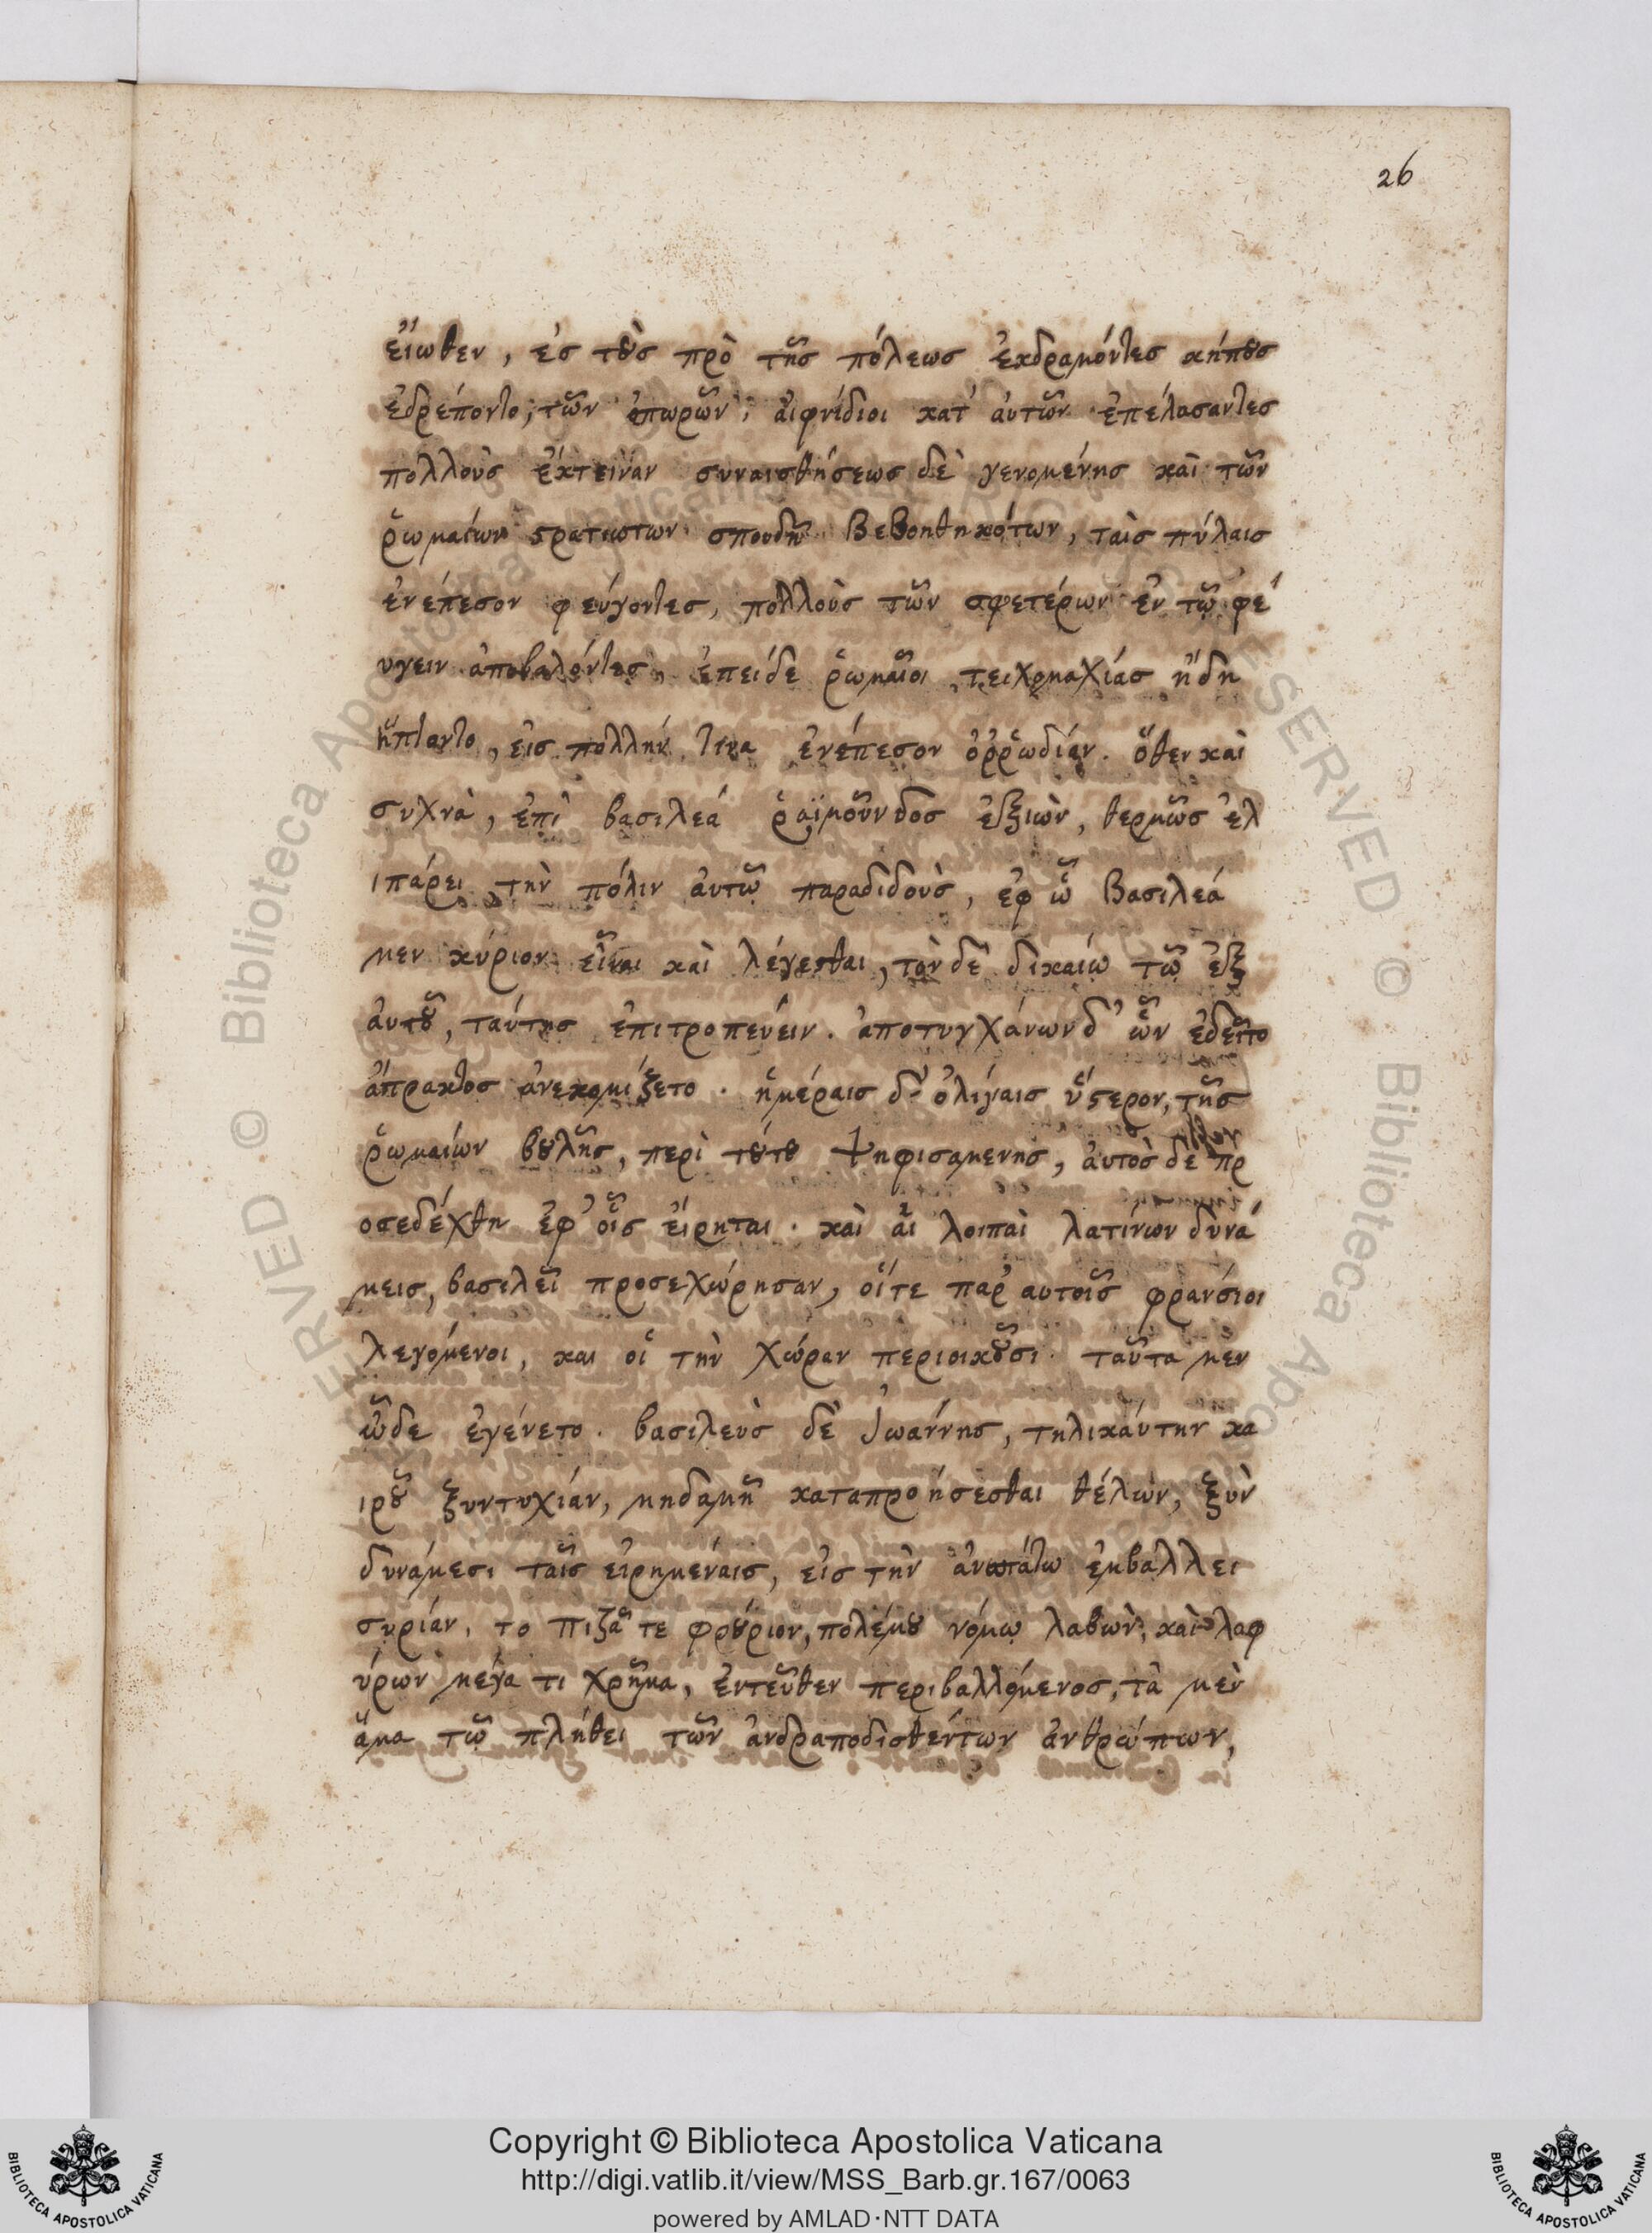 26
εἴωθεν, ἐς τοὺς πρὸ τῆς πόλεως ἐκδραμόντες κήπους
ἐδρέποντο, τῶν ὀπωρῶν, ἀιφνίδιοι κατ' ἀυτῶν ἐπέλασαντες
πολλοὺς ἔκτειναν συναισθήσεως δὲ γενομένης καὶ τῶν
ῥωμαίων στρατιωτων σπουδῇ βεβοηθηκότων, ταῖς πύλαις
ἐνέπεσον φεύγοντες, πολλοὺς τῶν σφετέρων ἐν τῷ φέ
υγειν ἀποβαλόντες, ἐπείδε ῥωμαῖοι τειχομαχίας ἤδη
ἥπτοντο, εἰς πολλήν τινα ἐνέπεσον ὀῤῥωδίαν. ὅθεν καὶ
συχνὰ, ἐπὶ βασιλεά ῥαϊμοῦνδος ἐξιὼν, θερμῶς ἐλ
ιπάρει τὴν πόλιν ἀυτῷ παραδιδοὺς, ἐφ ᾧ βασιλεά
μεν κύριον εἶναι καὶ λέγεσθαι, τὸν δὲ δικαίω τῷ ἐξ
ἀυτοῦ, ταύτης ἐπιτροπεύειν. ἀποτυγχάνων δ' ὧν ἐδεῖτο
ἄπρακτος ἀνεκομίζετο. ἡμέραις δ' ὀλίγαις ὕστερον, τῆς
ῥωμαίων βουλῆς, περὶ τούτου ψηφισαμενης, ἀυτὸς δὲ πρ
οσεδέχθη ἐφ' οἷς εἴρηται. καὶ ἁι λοιπαὶ λατίνων δυνά
μεις, βασιλεῖ προσεχώρησαν, οἵ τε παρ' αυτοῖς φρανσίοι
λεγόμενοι, και οἱ τὴν χώραν περιοικοῦσι. ταῦτα μεν
ὧδε ἐγένετο. βασιλεὺς δὲ Ἰωάννης, τηλικάυτην κα
ιροῦ ξυντυχίαν, μηδαμῆ καταπροήσεσθαι θέλων, ξυν
δυνάμεσι ταῖς εἰρημέναις, εἰς τὴν ἀνωτάτω ἐμβάλλει
συρίαν, το πιζᾶ τε φρούριον, πολέμου νόμῳ λαβὼν, καὶ λαφ
ύρων μέγα τι χρῆμα, ἐντεῦθεν περιβαλλόμενος, τὰ μὲν
ἅμα τῷ πλήθει τῶν ἀνδραποδισθέντων ἀνθρώπων,
Copyright © Biblioteca Apostolica Vaticana
http://digi.vatlib.it/view/MSS_Barb.gr.167/0063
powered by AMLAD·NTT DATA
BIBLIOTECA APOSTOLICA VATICANA
BIBLIOTECA APOSTOLICA VATICANA